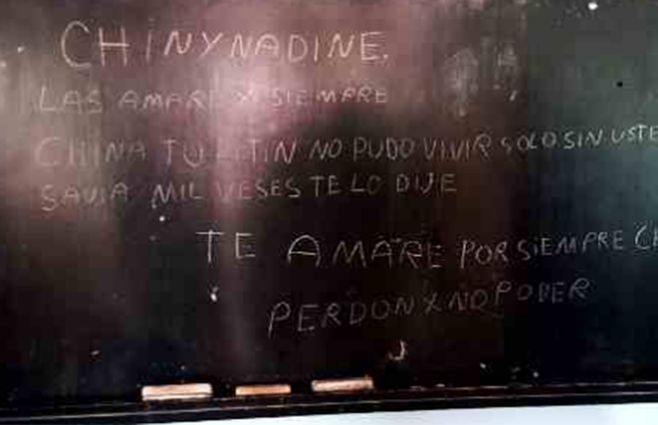 CHINYNADINE.
LAS AMARE X SIEMPRE
CHINA TU TIN NO PUDO VIVIR SOLO SIN USTE
SAVIA MIL VESES TE LO DIJE
TE AMARE POR SIEMPRE CH
PERDON X NO PODER